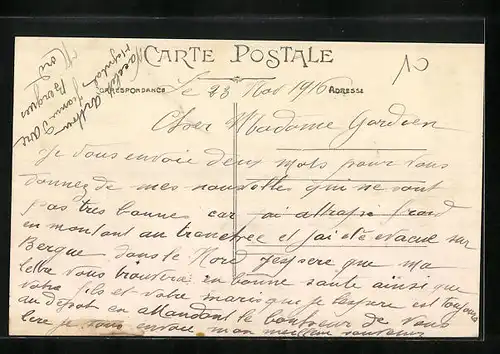 CARTE POSTALE
CORRESPONDANCE
ADRESSE
10
Le 23 Nov 1916
Cher Madame Gardien
Je vous envoie deux mots pour vous
donnez de mes nouvelles qui ne sont
pas tres bonnes car jai attrapé froid
en montant au tranchee et jai été evacué sur
Bergue dans le Nord Jespere que ma
lettre vous trouvera en bonne sante ainsi que
votre fils et votre maris que jespere est toujours
au depot en attendant le bonheur de vous
lire je vous envoie mon meilleur souvenir
Arthur
Hopital
Bergues
Nord